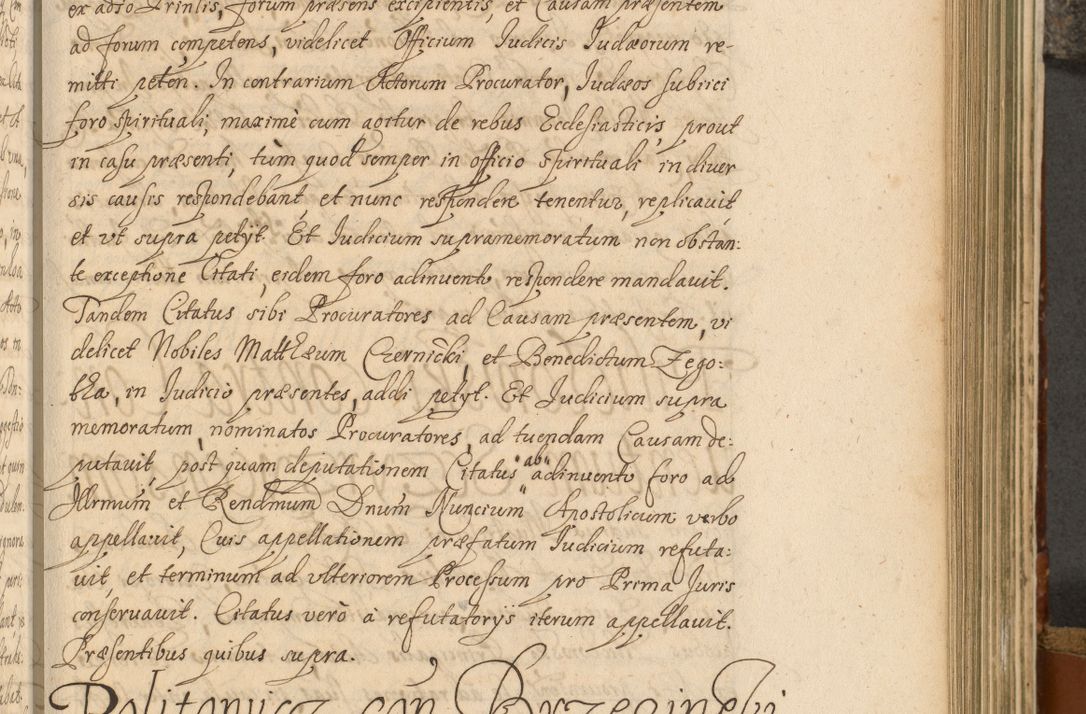 ex adso Trinlis, forum præsens excipientis, et Causam præsentem
ad forum competens, videlicet Officium Iudicis Iudæorum re-
mitti peten. In contrarium Actorum Procurator, Iudæos subiici
foro spirituali, maximè cum agitur de rebus Ecclesiasticis, prout
in casu præsenti, tùm quod semper in officio Spirituali in diver
sis causis respondebant, et nunc respondere tenentur, replicavit
et vt supra petyt. Et Iudicium supramemoratum non obstan:
te exceptione Citati, eidem foro adinvento respondere mandauit.
Tandem Citatus sibi Procuratores ad Causam præsentem, vi
delicet Nobiles Matthæum Czernicki, et Benedictum Zego:
tka, in Iudicio præsentes, addi petyt. Et Iudicium supra
memoratum, nominatos Procuratores, ad tuendam Causam de:
putauit, post quam deputationem Citatus "ab" adinvento foro ad
Illrmum et Rendmum Dnum Nuncium Apostolicum verbo
appellauit, Cuis appellationem præfatum Iudicium refuta:
uit, et terminum ad vlteriorem Processum pro Prima Iuris
conseruauit. Citatus verò à refutatorys iterum appellauit.
Præsentibus quibus supra.
Politanycz con Brzezinski